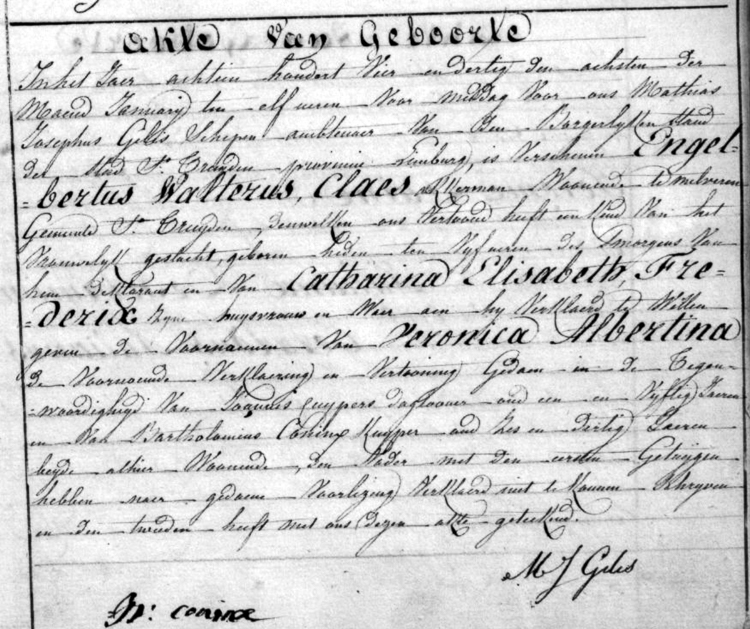 Akte Van Geboorte
In het Jaer achtien hondert Vier en dertig den achsten der
Maend January ten elf uren Voor middag Voor ons Mathias
Josephus Gelis Schepen ambtenaer Van Den Borgerlyken Stand
der stad St Truyden provincie Limburg, is Verschenen Engel-
-bertus Walterus, Claes akkerman Woonende te melveren
Gemeente St Truyden, denwelken ons Vertoond heeft een Kind Van het
Vrouwelyk geslacht, geboren heden ten Vyf uren des smorgens Van
hem Declarant en Van Catharina Elisabeth, Fre-
-derix zyne huysvrouw en Waer aen hy Verklaerd te Willen
geven de Voornaemen Van Veronica Albertina
de Voornoemde Verklaering en Vertooning Gedaen in de Tegen-
-woordigheyd Van Cuypers daglooner oud een en Vyftig Jaeren
en Van Bartholomeus Coninx Kuyper oud Zes en dertig Jaeren
beyde alhier Woonende, den Vader met den eersten Getuygen
hebben naer gedaene Voorlezing Verklaerd niet te Konnen Schryven
en den tweeden heeft met ons dezen akte geteekend.
M J Gelis
B: coninx